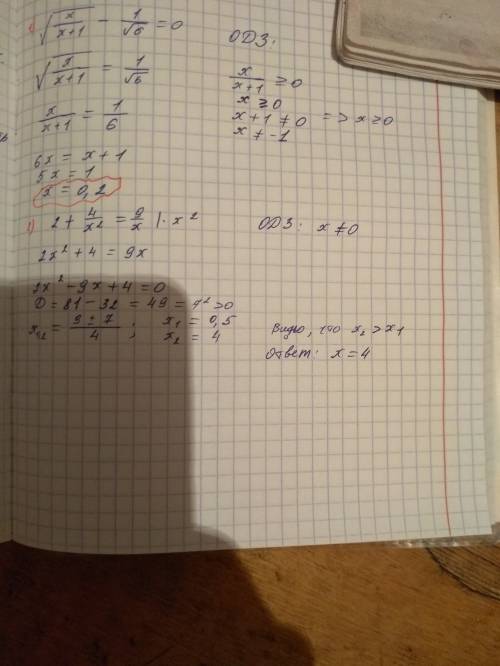 √(x/(x+1)) - 1/√6 = 0
ОДЗ:
√(x/(x+1)) = 1/√6
x/(x+1) ≥ 0
x ≥ 0
x/(x+1) = 1/6
x+1 ≠ 0 => x ≥ 0
x ≠ -1
6x = x + 1
5x = 1
x = 0,2
2 + 4/x² = 9/x | · x²
ОДЗ: x ≠ 0
2x² + 4 = 9x
2x² - 9x + 4 = 0
D = 81 - 32 = 49 = 7² > 0
x₁,₂ = (9 ± 7)/4 ; x₁ = 0,5
x₂ = 4
Видно, что x₂ > x₁
Ответ: x = 4